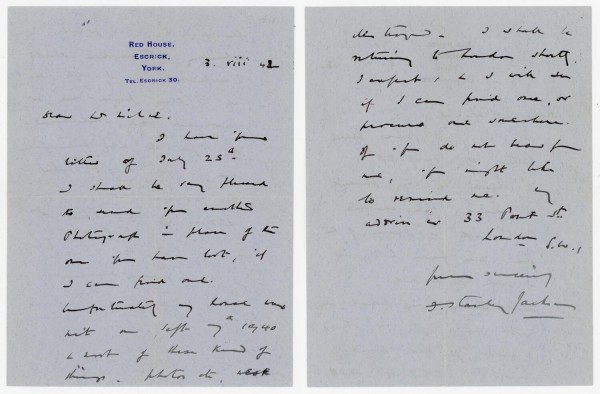 RED HOUSE,
ESCRICK,
YORK.
TEL. ESCRICK 30.
3. viii 42
Dear Mr
I have your
letter of July 25th
I should be very pleased
to send you another
Photograph in place of the
one you have lost, if
I can find one.
Unfortunately my house was
hit on Sept 1940
& most of these kind of
things - photos etc, were
destroyed - I shall be
returning to London shortly
I expect, & I will see
if I can find one, or
procure one somewhere.
If you do not hear from
me, you might like
to remind me. My
address is 33 Pont St.
London S.W.1
Yours sincerely
F. Stanley Jackson